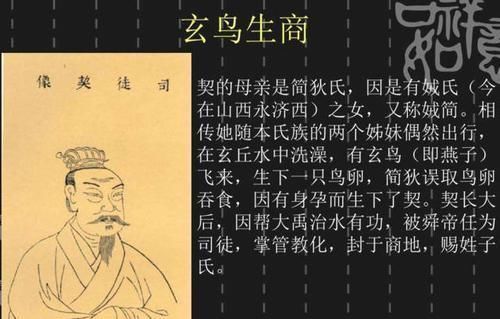 玄鸟生商
吉祥如意
像契徒司
契的母亲是简狄氏，因是有娀氏（今
在山西永济西）之女，又称娀简。相
传她随本氏族的两个姊妹偶然出行，
在玄丘水中洗澡，有玄鸟（即燕子）
飞来，生下一只鸟卵，简狄误取鸟卵
吞食，因有身孕而生下了契。契长大
后，因帮大禹治水有功，被舜帝任为
司徒，掌管教化，封于商地，赐姓子
氏。